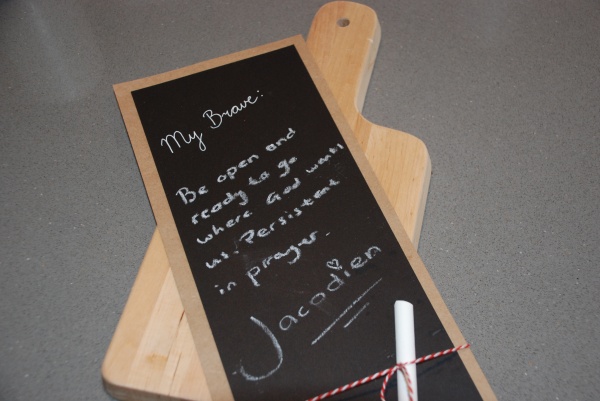 My Brave:
Be open and
ready to go
where God wants
us. Persistent
in prayer.
Jacodien